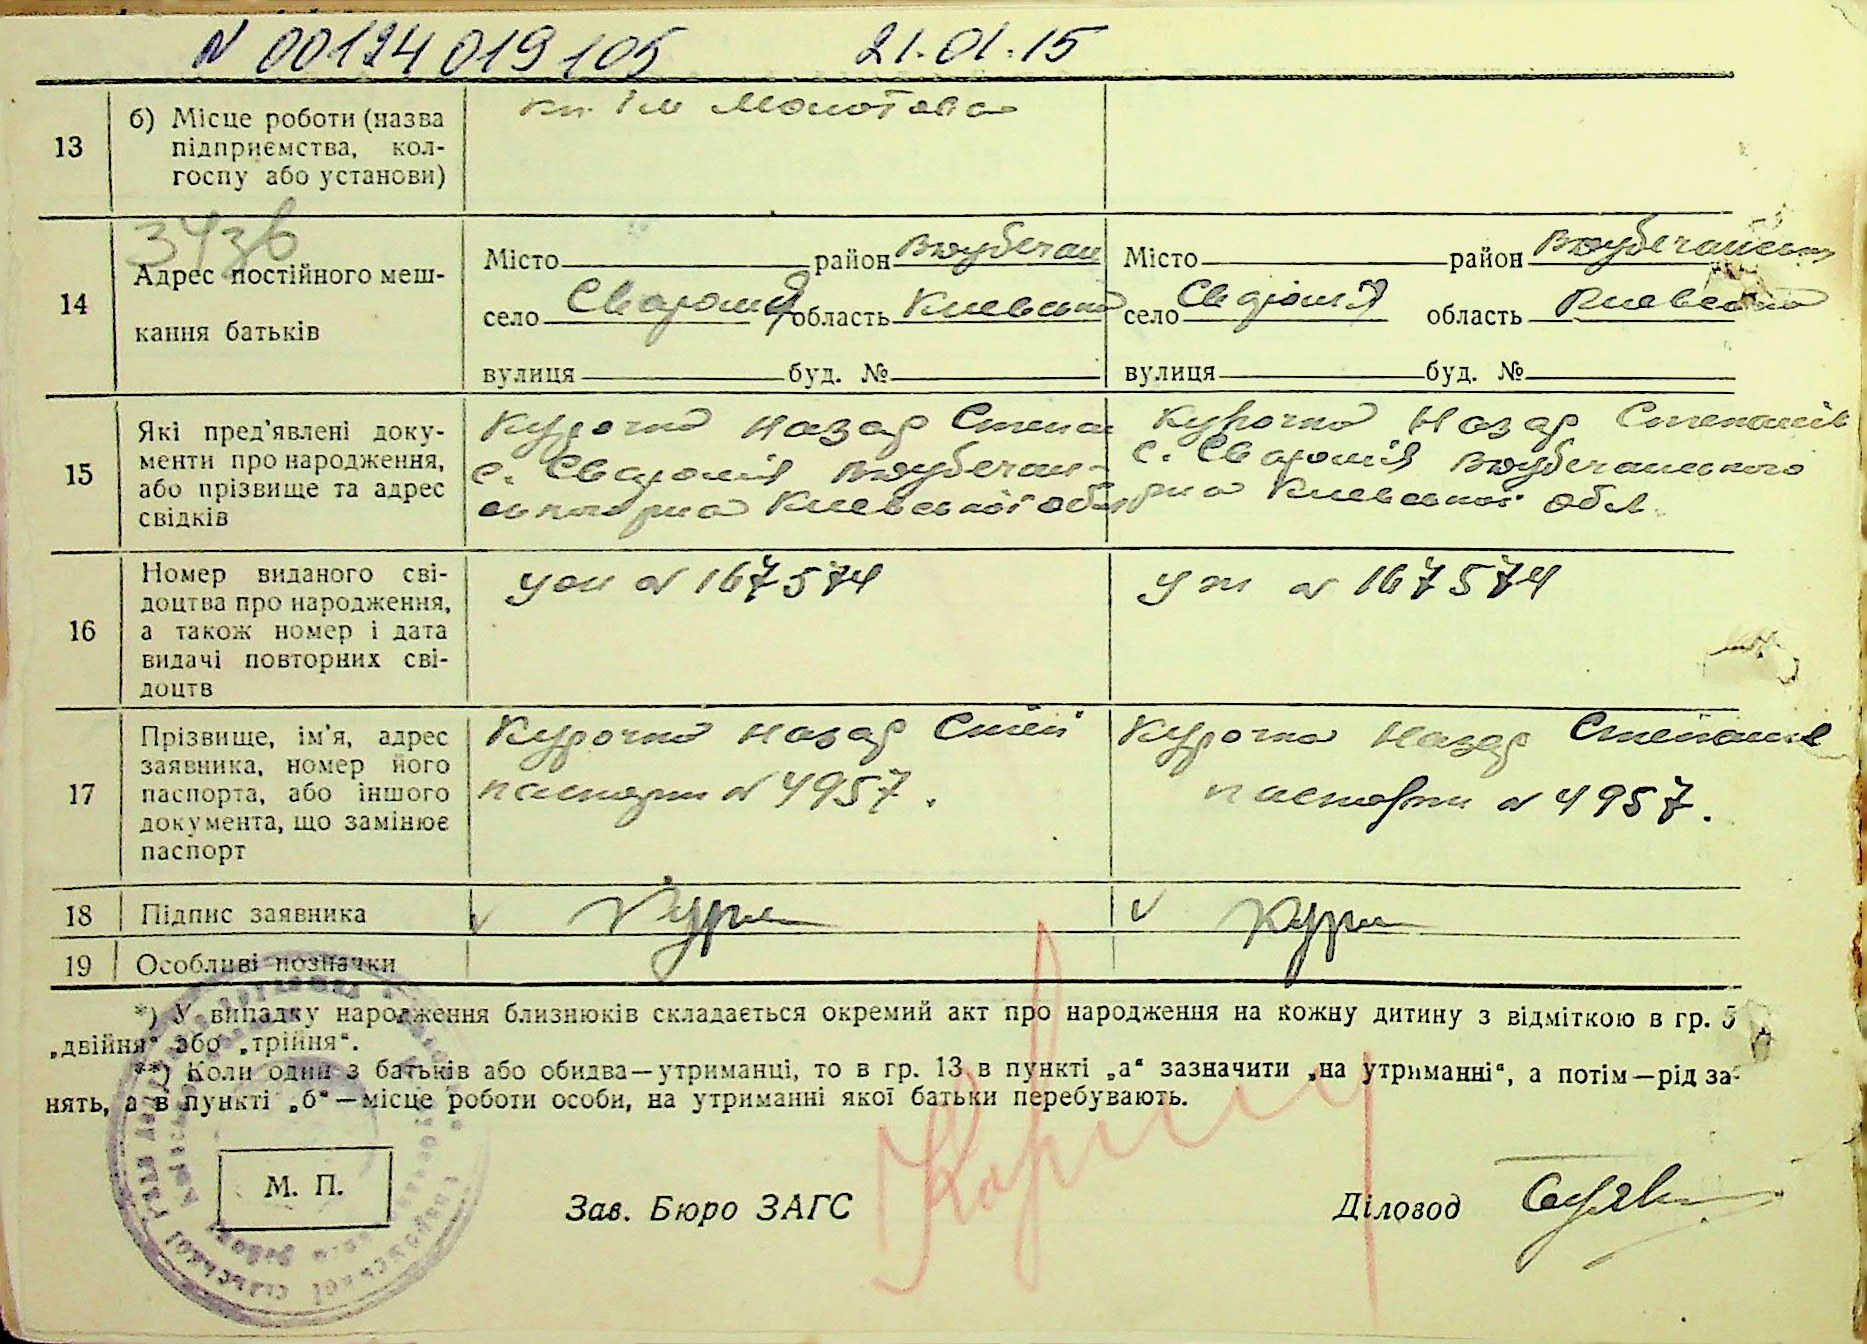 N 00124019105 21.01.15
13 б) Місце роботи (назва підприємства, колгоспу або установи)
Кп. Ім Молотова
34зв
14 Адрес постійного мешкання батьків
Місто район Вюубечан Місто район
село Сваромя область Киевська село Сваромя область Киевська
вулиця буд. № вулиця буд. №
15 Які пред'явлені документи про народження, або прізвище та адрес свідків
Курочка Назар Степа Курочка Назар Степанів
с. Сваромія с. Сваромія
р-на Киевської обл р-на Киевської обл.
16 Номер виданого свідоцтва про народження, а також номер і дата видачі повторних свідоцтв
N 167574 N 167574
17 Прізвище, ім'я, адрес заявника, номер його паспорта, або іншого документа, що замінює паспорт
Курочка Назар Степ Курочка Назар Степанів
паспорт N 4957. паспорт N 4957.
18 Підпис заявника
v Кур v Кур
19 Особливі позначки
*) У випадку народження близнюків складається окремий акт про народження на кожну дитину з відміткою в гр. 5
„двійня“ або „трійня“.
**) Коли один з батьків або обидва—утриманці, то в гр. 13 в пункті „а“ зазначити „на утриманні“, а потім—рід за-
нять, а в пункті „б“—місце роботи особи, на утриманні якої батьки перебувають.
М. П.
Зав. Бюро ЗАГС Діловод